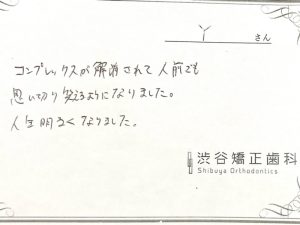 Y さん
コンプレックスが解消されて人前でも
思い切り笑えるようになりました。
人生明るくなりました。
渋谷矯正歯科
Shibuya Orthodontics